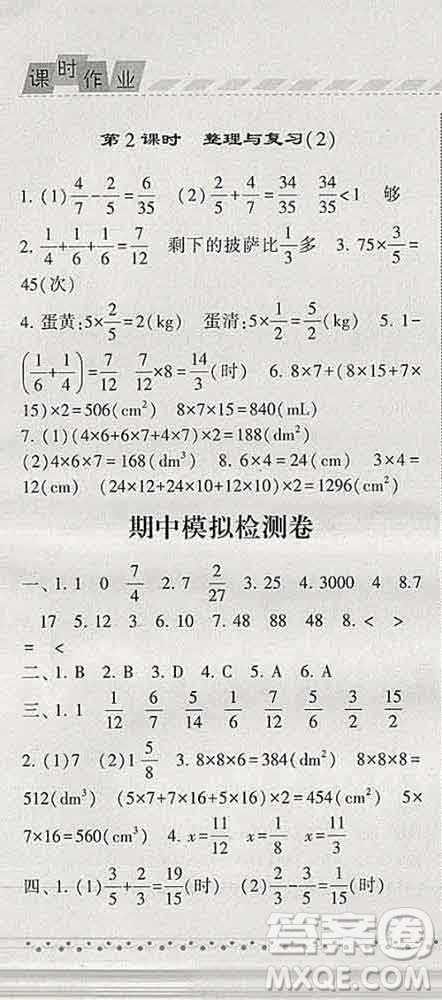 课时作业
第2课时　整理与复习(2)
1. (1) 4/7-2/5=6/35　(2) 2/5+4/7=34/35　34/35<1　够
2. 1/4+1/6+1/6=7/12　剩下的披萨比1/3多　3. 75×3/5=
45(次)
4. 蛋黄:5×2/5=2(kg)　蛋清:5×1/2=5/2(kg)　5. 1-
(1/6+1/4)=7/12　7/12×8=14/3(时)　6. 8×7+(8×15+7×
15)×2=506(cm²)　8×7×15=840(mL)
7. (1)(4×6+6×7+4×7)×2=188(dm²)
(2)4×6×7=168(dm³)　8. 6×4=24(cm)　3×4=
12(cm)　(24×12+24×10+12×10)×2=1296(cm²)
期中模拟检测卷
一、1. 1　0　7/4　2. 7　2/27　3. 25　4. 3000　4　8.7
17　5. 12　3　6. 13　7. 48　88　48　8. <　>
=　<
二、1. B　2. B　3. D　4. C　5. A　6. A
三、1. 1　1/12　6/7　5/12　7/20　7/12　3/2　15/2
2. (1)7　(2)1　5/8　3. 8×8×6=384(dm²)　8×8×8=
512(dm³)　(5×7+7×16+5×16)×2=454(cm²)　5×
7×16=560(cm³)　4. x=11/12　x=1/8　x=3/2
四、1. (1) 3/5+2/3=19/15(时)　(2) 2/3-3/5=1/15(时)
答案卷
MXQE.COM